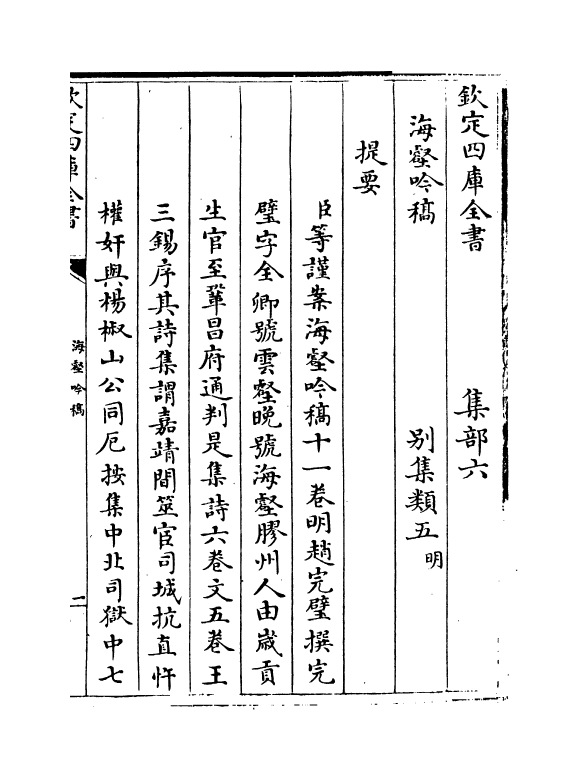 欽定四庫全書　集部六
海壑吟稿　別集類五明
提要
臣等謹案海壑吟稿十一卷明趙完璧撰完
璧字全卿號雲壑晚號海壑膠州人由歲貢
生官至鞏昌府通判是集詩六卷文五卷王
三錫序其詩集謂嘉靖間筮官司城抗直忤
權奸與楊椒山公同厄按集中北司獄中七
欽定四庫全書
海壑吟稿